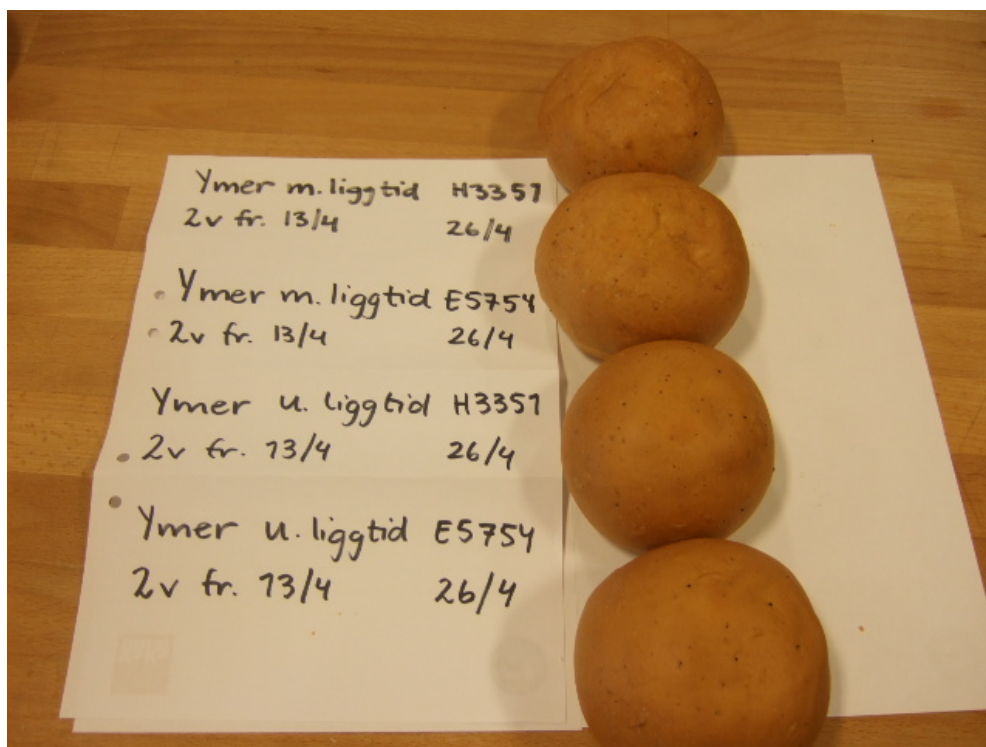 Ymer m. liggtid H3351
2v fr. 13/4 26/4
Ymer m. liggtid E5754
2v fr. 13/4 26/4
Ymer u. liggtid H3351
2v fr. 13/4 26/4
Ymer u. liggtid E5754
2v fr. 13/4 26/4